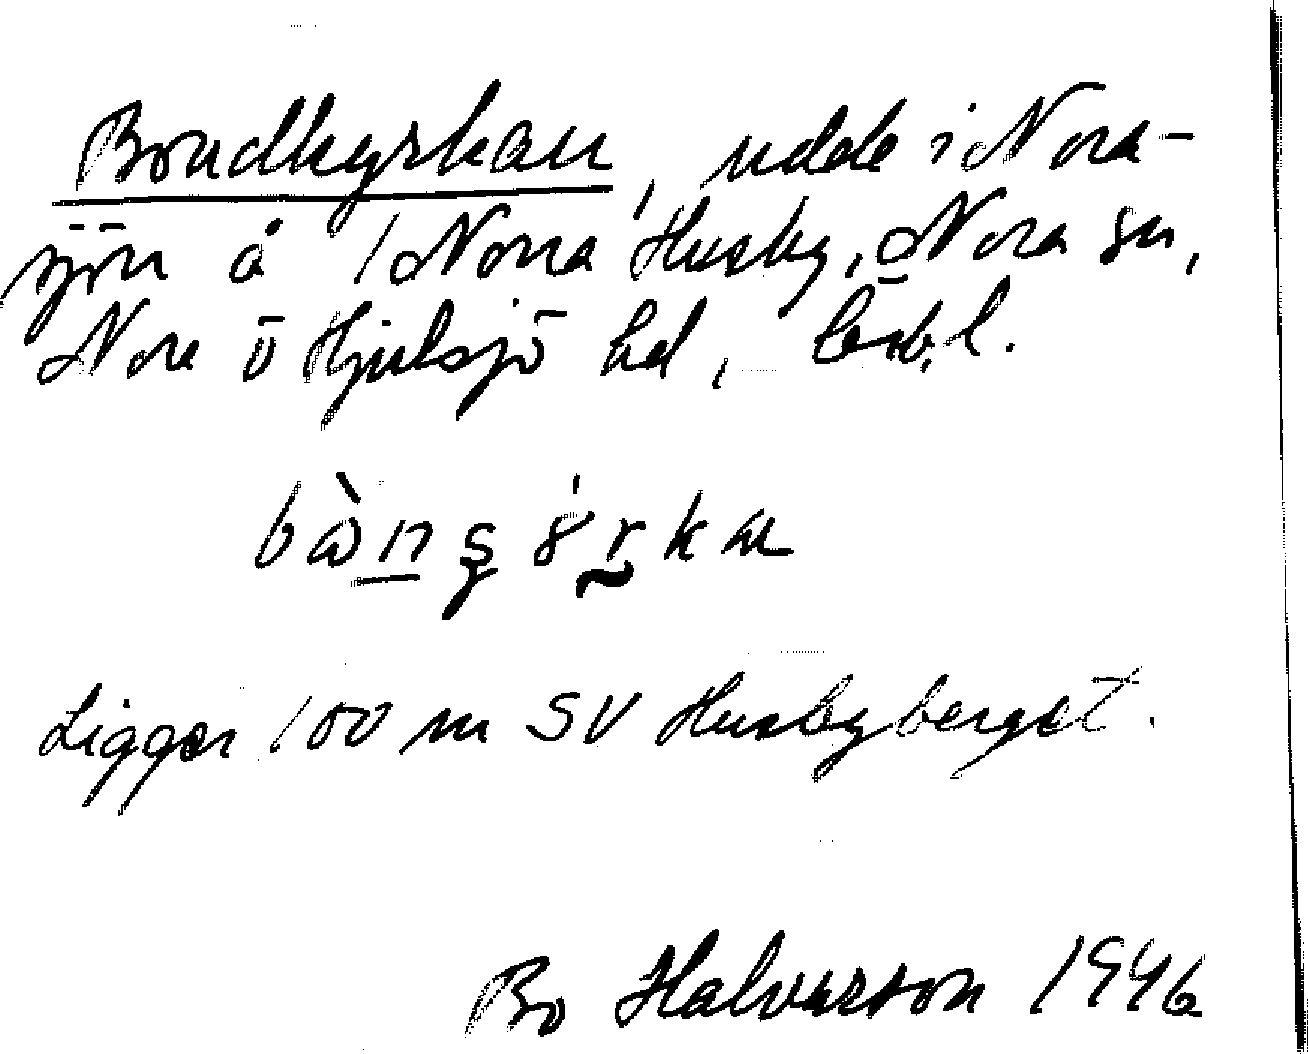 Bondkyrkan, udde i Nora-
sjön å 1 Norra Husby, Nora sn,
Nora o Hjulsjö hd,
Ligger 100 m SV Husbyberget.
Bo Halvarson 1946